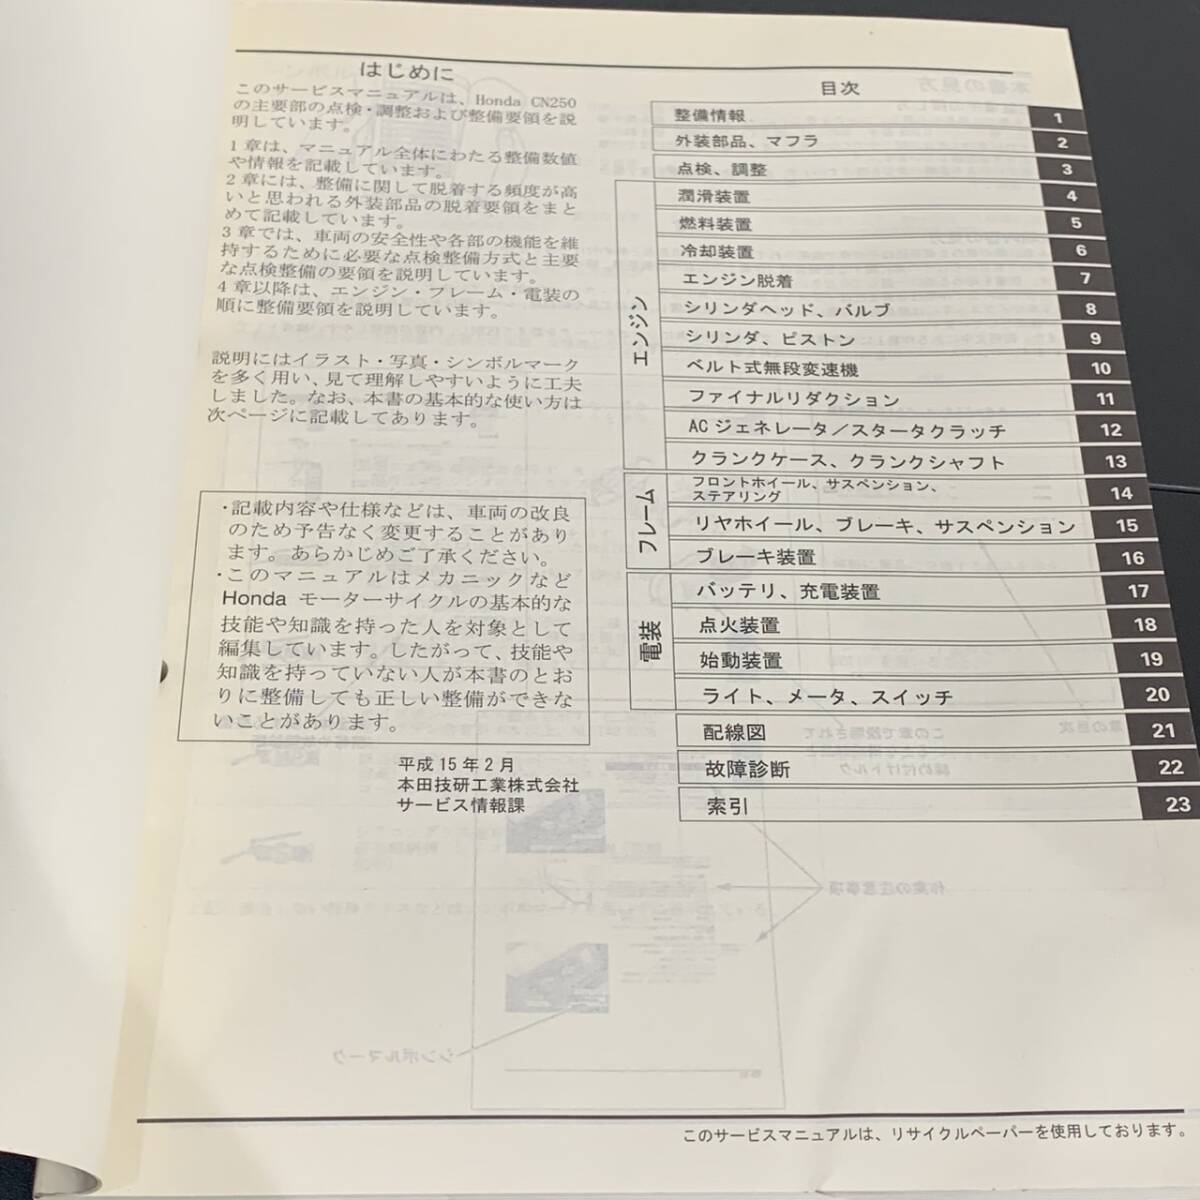 はじめに
このサービスマニュアルは、Honda CN250
の主要部の点検・調整および整備要領を説
明しています。
1章は、マニュアル全体にわたる整備数値
や情報を記載しています。
2章には、整備に関して脱着する頻度が高
いと思われる外装部品の脱着要領をまと
めて記載しています。
3章では、車両の安全性や各部の機能を維
持するために必要な点検整備方式と主要
な点検整備の要領を説明しています。
4章以降は、エンジン・フレーム・電装の
順に整備要領を説明しています。
説明にはイラスト・写真・シンボルマーク
を多く用い、見て理解しやすいように工夫
しました。なお、本書の基本的な使い方は
次ページに記載してあります。
・記載内容や仕様などは、車両の改良
のため予告なく変更することがあり
ます。あらかじめご了承ください。
・このマニュアルはメカニックなど
Honda モーターサイクルの基本的な
技能や知識を持った人を対象として
編集しています。したがって、技能や
知識を持っていない人が本書のとお
りに整備しても正しい整備ができな
いことがあります。
平成15年2月
本田技研工業株式会社
サービス情報課
目次
整備情報 1
外装部品、マフラ 2
点検、調整 3
エンジン
潤滑装置 4
燃料装置 5
冷却装置 6
エンジン脱着 7
シリンダヘッド、バルブ 8
シリンダ、ピストン 9
ベルト式無段変速機 10
ファイナルリダクション 11
ACジェネレータ／スタータクラッチ 12
クランクケース、クランクシャフト 13
フレーム
フロントホイール、サスペンション、
ステアリング 14
リヤホイール、ブレーキ、サスペンション 15
ブレーキ装置 16
電装
バッテリ、充電装置 17
点火装置 18
始動装置 19
ライト、メータ、スイッチ 20
配線図 21
故障診断 22
索引 23
このサービスマニュアルは、リサイクルペーパーを使用しております。